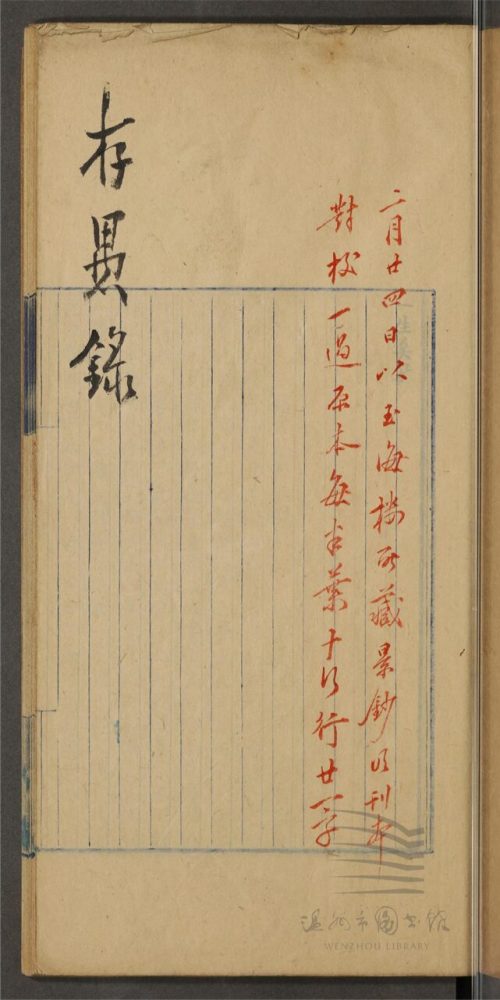 二月廿四日以玉海樓所藏景鈔明刊本
對校一過原本每半葉十行行廿一字
存愚錄
温州市图书馆
WENZHOU LIBRARY